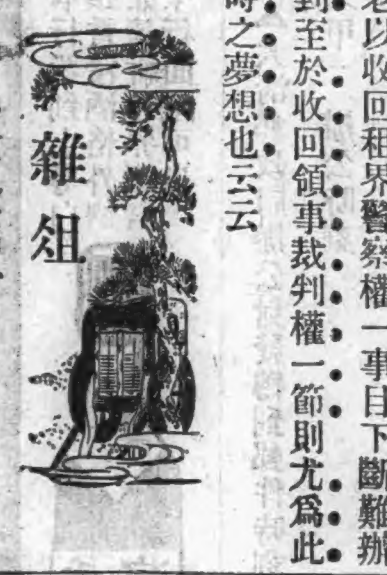 以收回租界警察權一事目下斷難辦
到至於收回領事裁判權一節則尤爲此
時之夢想也云云
雜俎